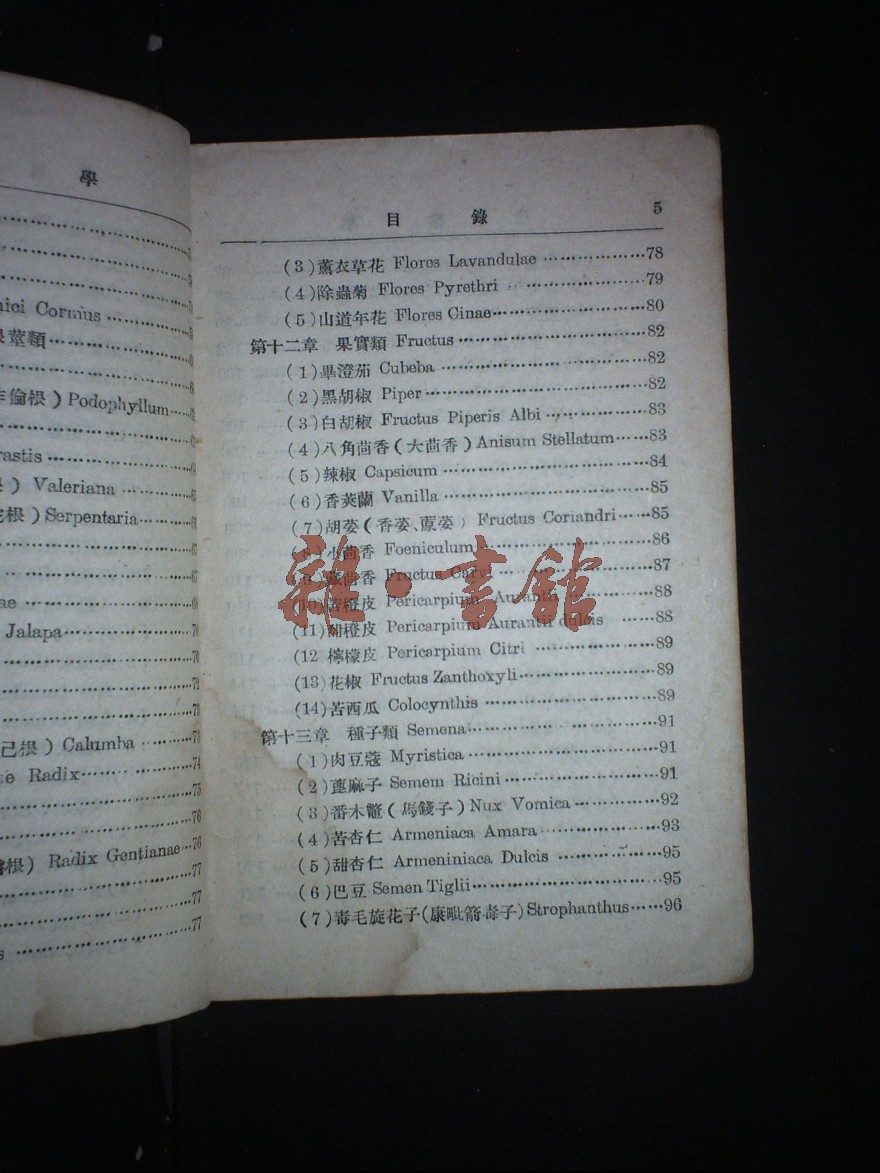 學
nici Cormus
根莖類
倫根）Podophyllum
rastis
）Valeriana
根）Serpentaria
ae
Jalapa
己根）Calumba
Radix
根）Radix Gentianae…76
目 錄 5
(3)薰衣草花 Flores Lavandulae………………78
(4)除蟲菊 Flores Pyrethri………………79
(5)山道年花 Flores Cinae………………80
第十二章 果實類 Fructus………………82
(1)畢澄茄 Cubeba………………82
(2)黑胡椒 Piper………………82
(3)白胡椒 Fructus Piperis Albi………………83
(4)八角茴香(大茴香)Anisum Stellatum……83
(5)辣椒 Capsicum………………84
(6)香莢蘭 Vanilla………………85
(7)胡荽(香荽、蒝荽) Fructus Coriandri……85
(8)小茴香 Foeniculum………………86
(9)藏茴香 Fructus Carvi………………87
(10)苦橙皮 Pericarpium Aurantii………………88
(11)甜橙皮 Pericarpium Aurantii dulcis……88
(12 檸檬皮 Pericarpium Citri………………89
(13)花椒 Fructus Zanthoxyli………………89
(14)苦西瓜 Colocynthis………………89
第十三章 種子類 Semena………………91
(1)肉豆蔻 Myristica………………91
(2)蓖麻子 Semem Ricini………………91
(3)番木鼈(馬錢子)Nux Vomica………………92
(4)苦杏仁 Armeniaca Amara………………93
(5)甜杏仁 Armeniniaca Dulcis………………95
(6)巴豆 Semen Tiglii………………95
(7)毒毛旋花子(康毗箭毒子)Strophanthus……96
雜·書館